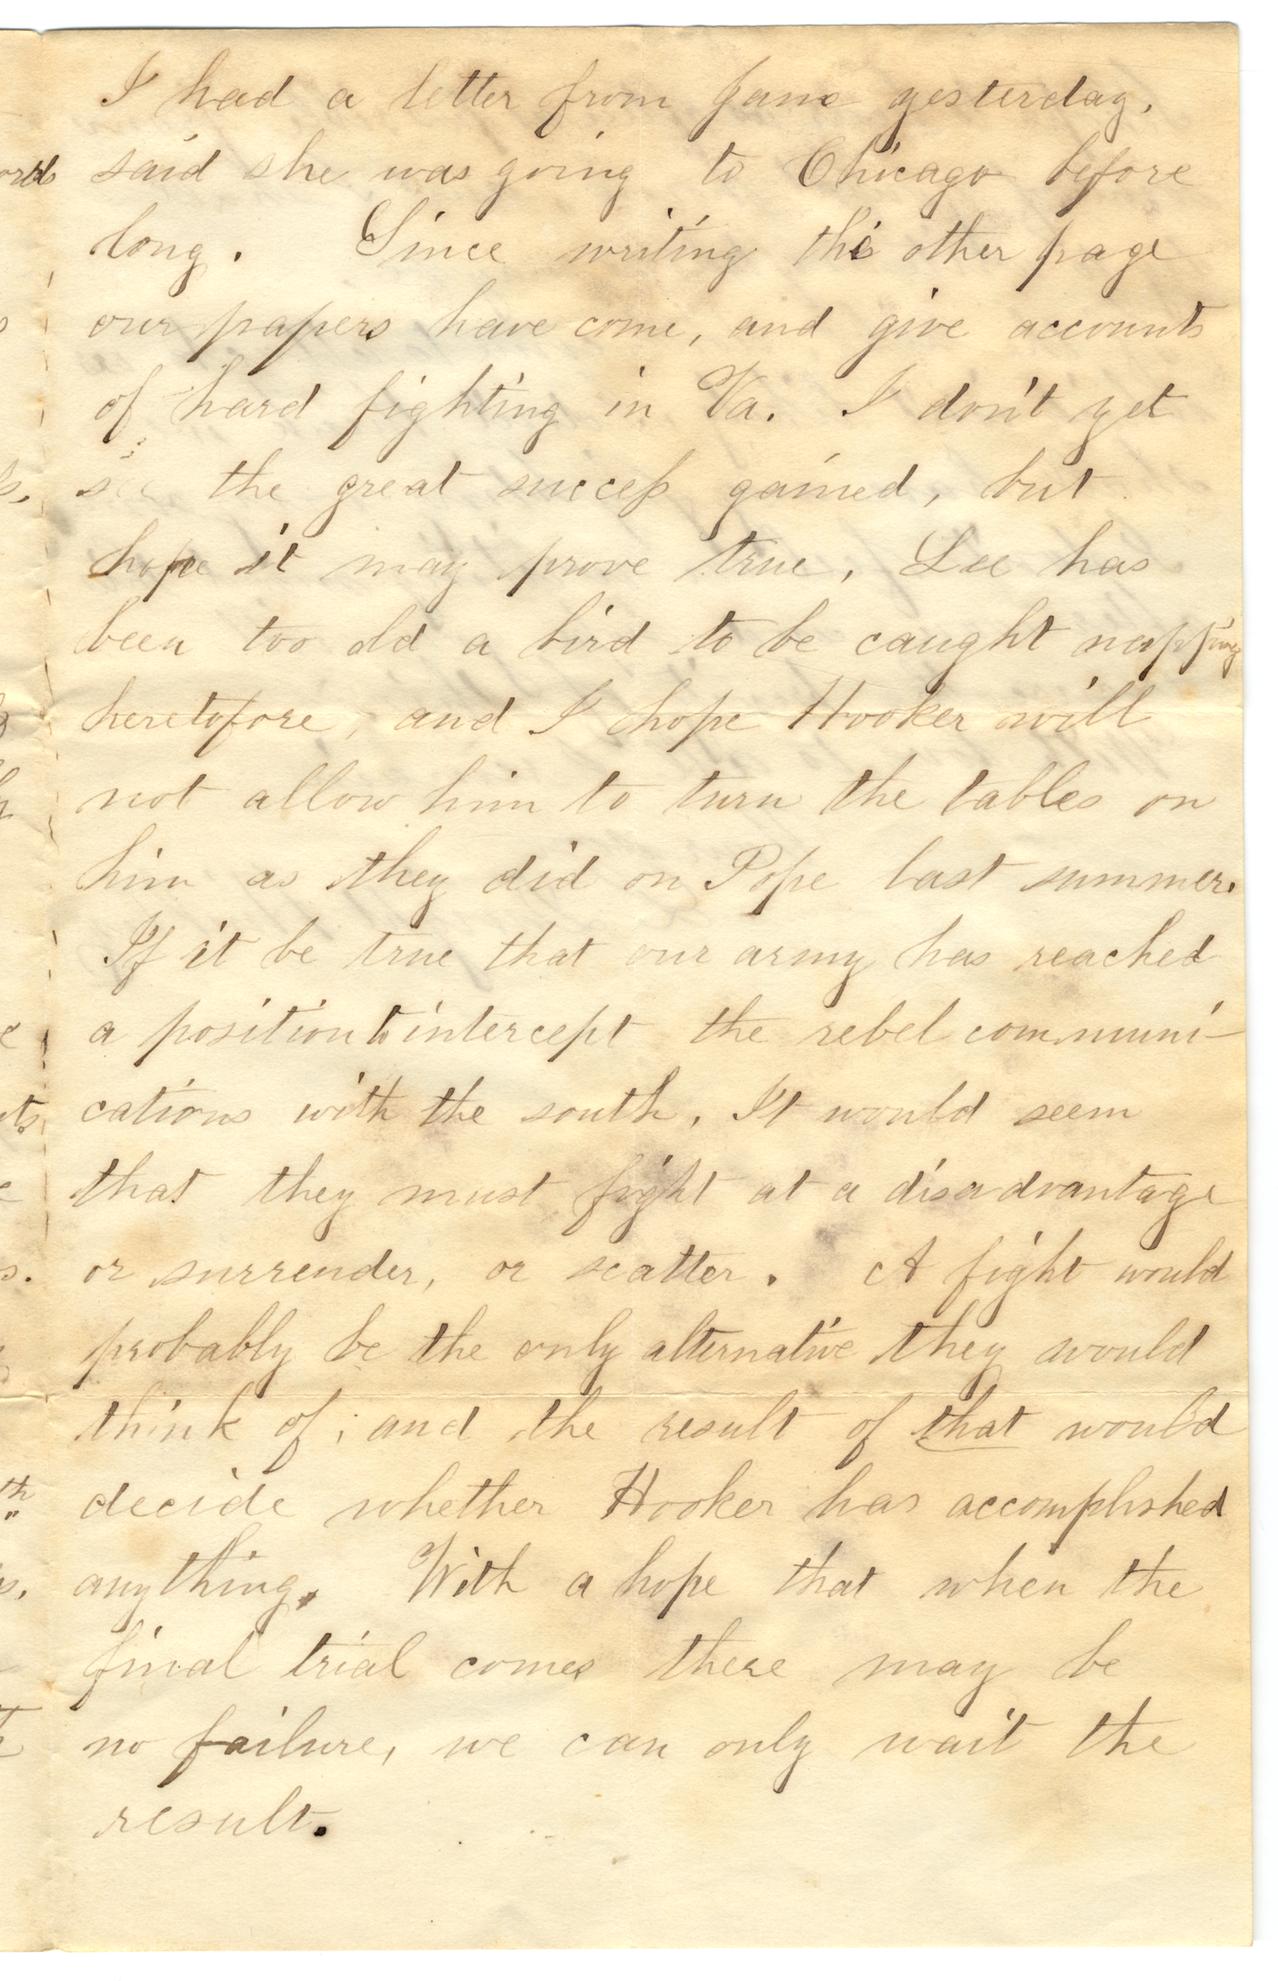 I had a letter from Jane yesterday.
said she was going to Chicago before
long. Since writing the other page
our papers have come, and give accounts
of hard fighting in Va. I don't yet
see the great success gained, but
hope it may prove true. Lee has
been too old a bird to be caught napping
heretofore, and I hope Hooker will
not allow him to turn the tables on
him as they did on Pope last summer.
If it be true that our army has reached
a position to intercept the rebel communi-
cations with the south, It would seem
that they must fight at a disadvantage
or surrender, or scatter. A fight would
probably be the only alternative they would
think of; and the result of that would
decide whether Hooker has accomplished
anything. With a hope that when the
final trial comes there may be
no failure, we can only wait the
result.